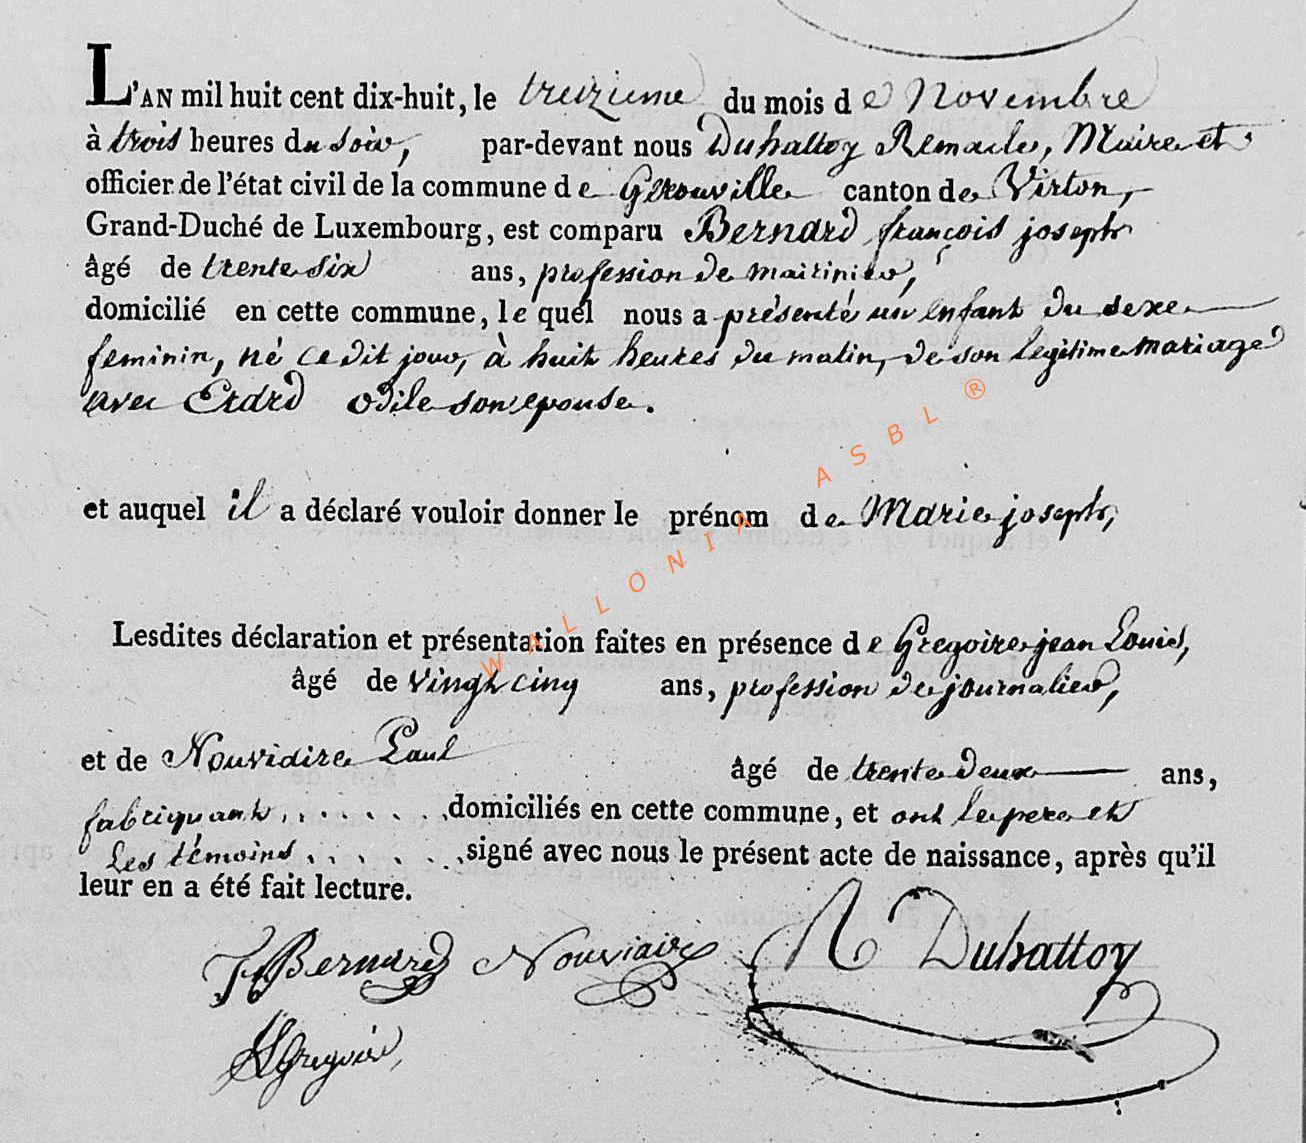 L'AN mil huit cent dix-huit, le treizieme du mois de Novembre
à trois heures du soir, par-devant nous Duhattoy Remacle, Maire et
officier de l'état civil de la commune de Gérouville canton de Virton,
Grand-Duché de Luxembourg, est comparu Bernard françois joseph
âgé de trente six ans, profession de
domicilié en cette commune, le quel nous a présenté un enfant du sexe
feminin, né ce dit jour, à huit heures du matin, de son legitime mariage
avec Erard odile son epouse.
et auquel il a déclaré vouloir donner le prénom de Marie joseph,
Lesdites déclaration et présentation faites en présence de Gregoire jean Louis,
âgé de vingt cinq ans, profession de journalier,
et de Nouvidire Paul âgé de trente deux ans,
fabriquant, . . . . . . . domiciliés en cette commune, et ont le pere et
Les témoins . . . . . . . signé avec nous le présent acte de naissance, après qu'il
leur en a été fait lecture.
Bernard Nouviaire R Duhattoy
Gregoire
WALLONIA ASBL ®